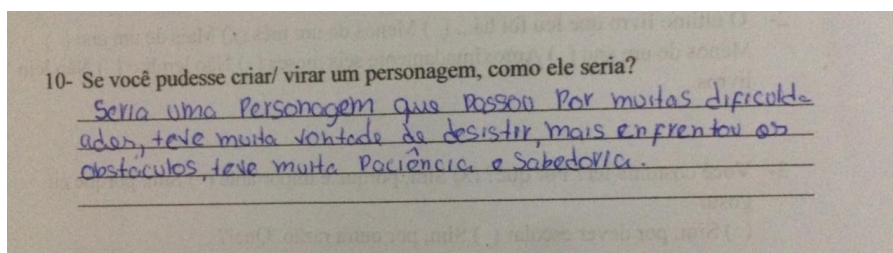 10- Se você pudesse criar/ virar um personagem, como ele seria?
Seria uma Personagem que Passou Por muitas dificulda
ades, teve muita vontade de desistir, mais enfrentou os
obstáculos, teve muita Paciência e Sabedoria.